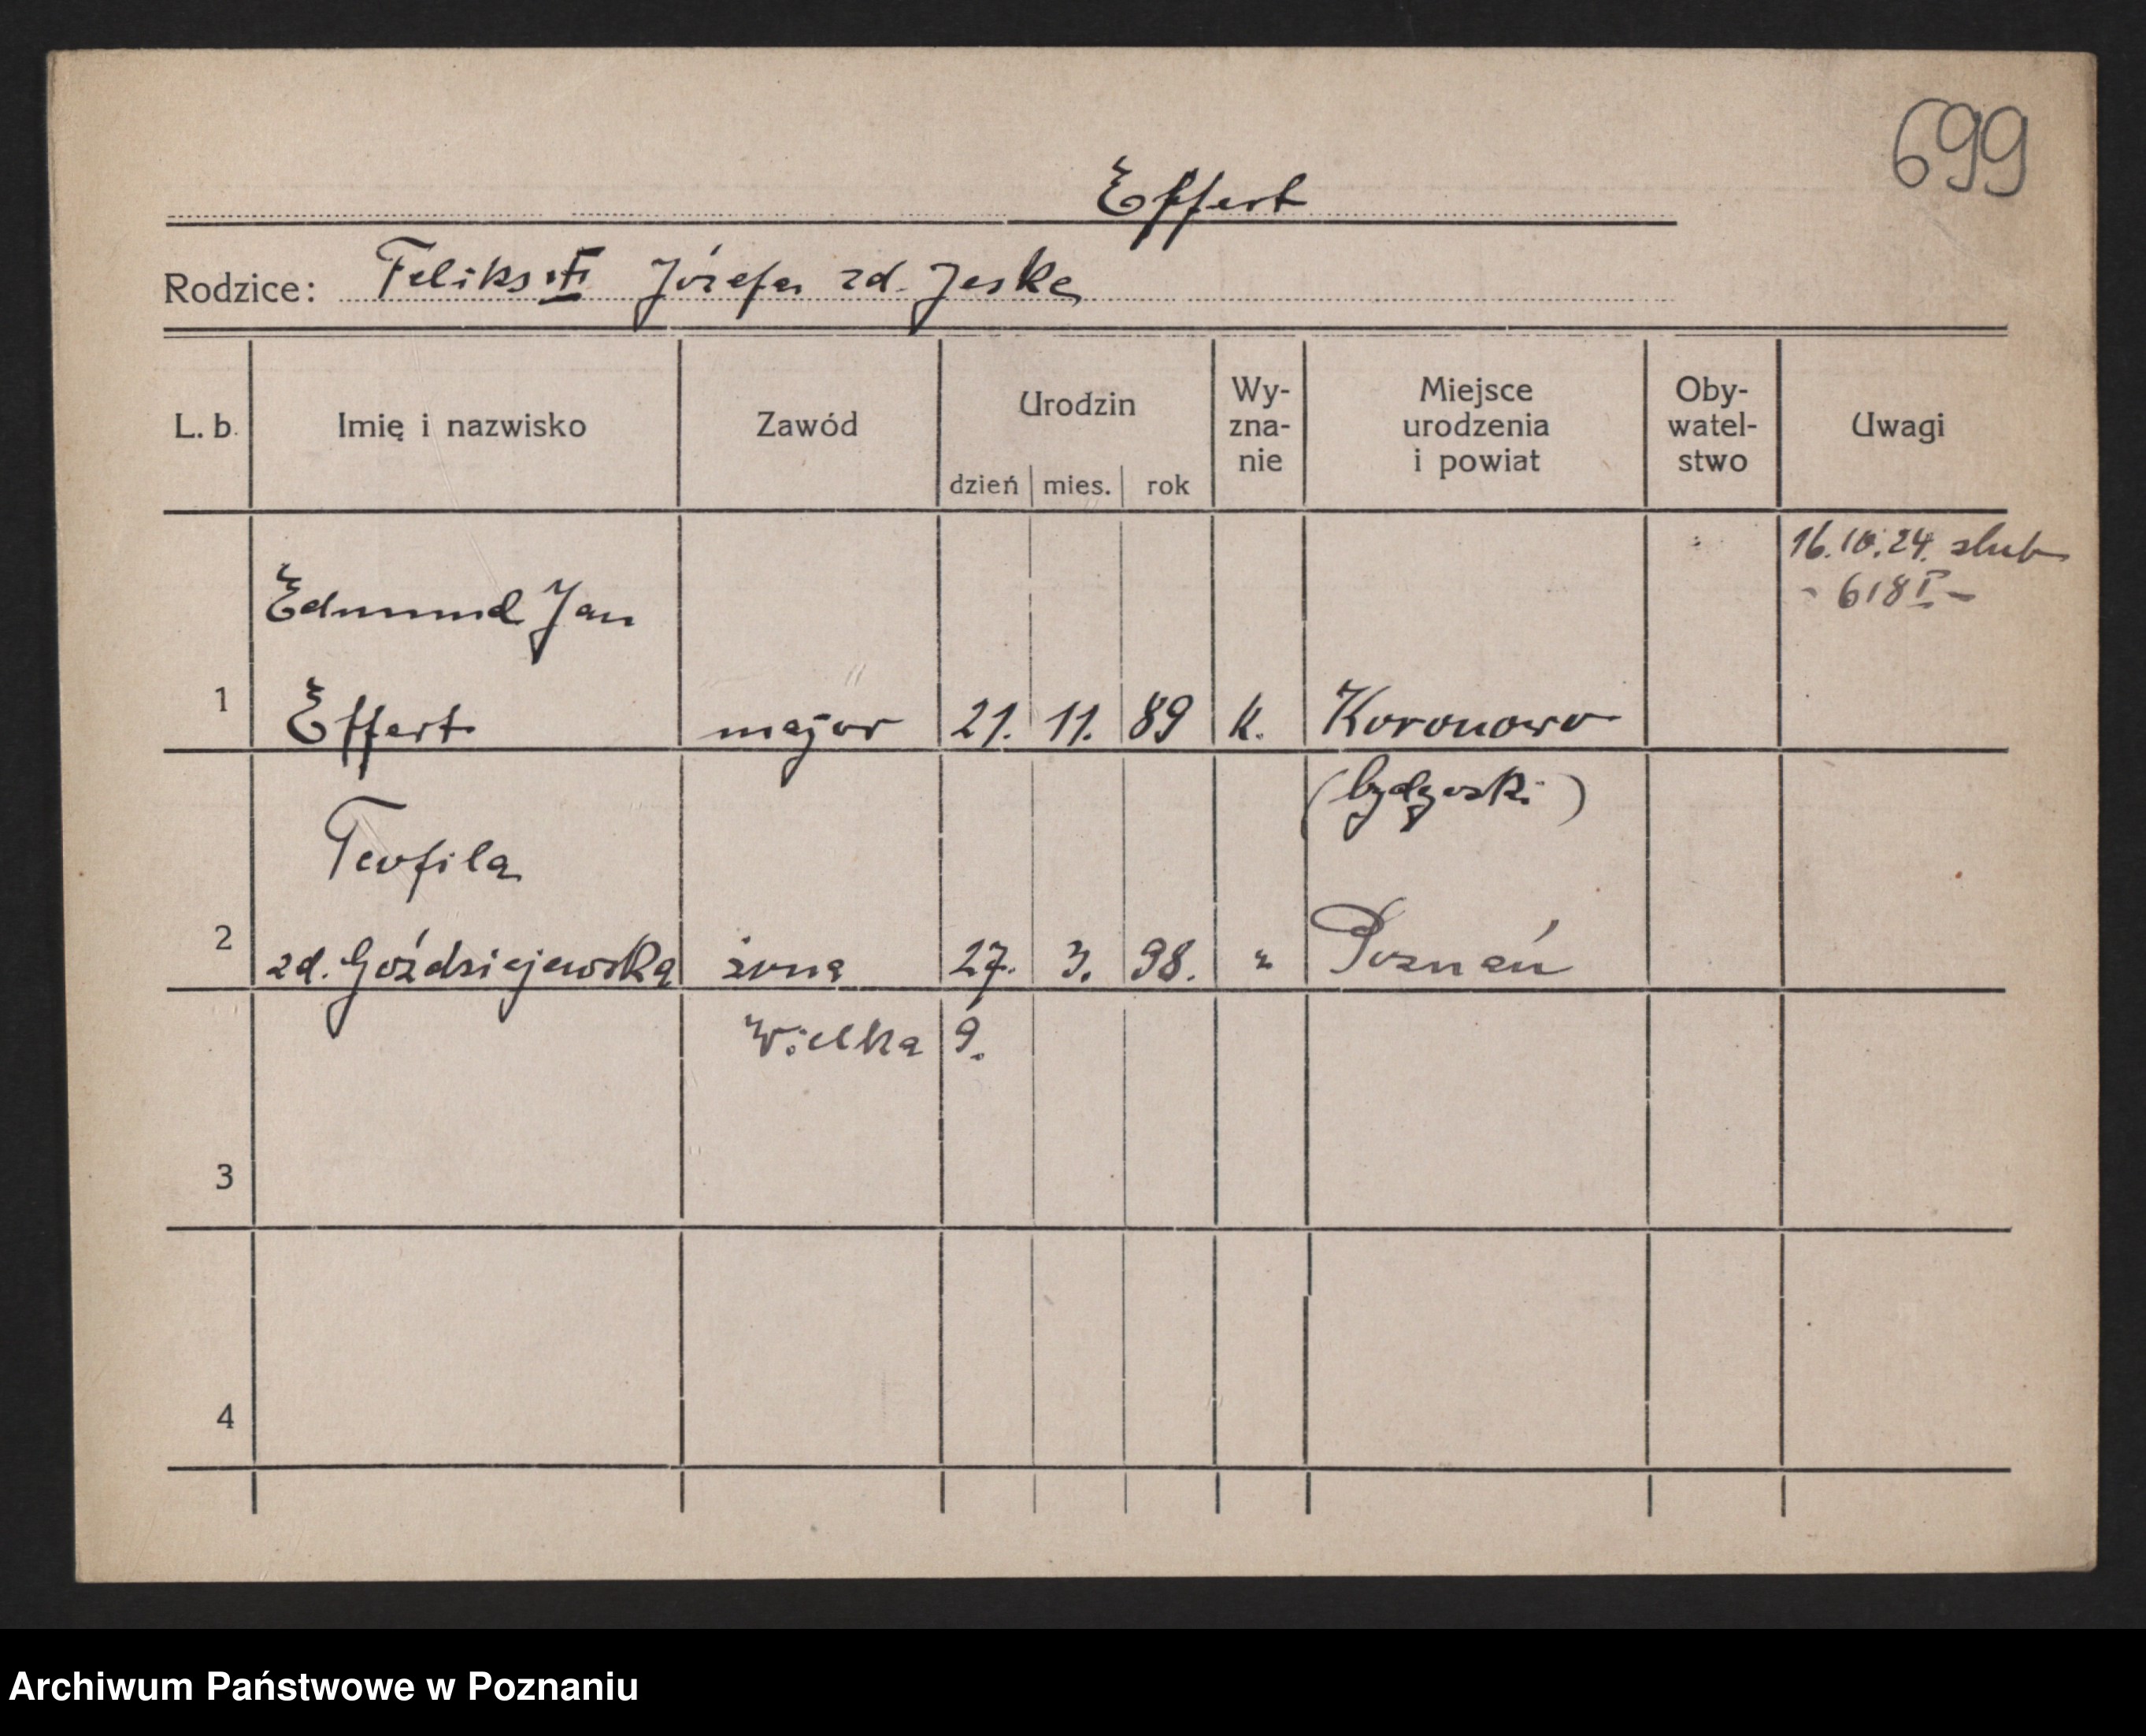 699
Effert
Rodzice: Feliks i Józefa zd. Jeska
L. b. Imię i nazwisko Zawód Urodzin dzień mies. rok Wy-zna-nie Miejsce urodzenia i powiat Oby-watel-stwo Uwagi
16.10.24. ślub
- 618 I -
Edmund Jan
1 Effert major 21. 11. 89 k. Koronowo
(bydgoski)
Teofila
2 zd. Goździejewska żona 27. 3. 98. " Poznań
Wielka 9.
3
4
Archiwum Państwowe w Poznaniu